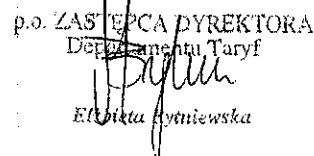 p.o. ZASTĘPCA DYREKTORA
Departamentu Taryf
Elżbieta Rytniewska